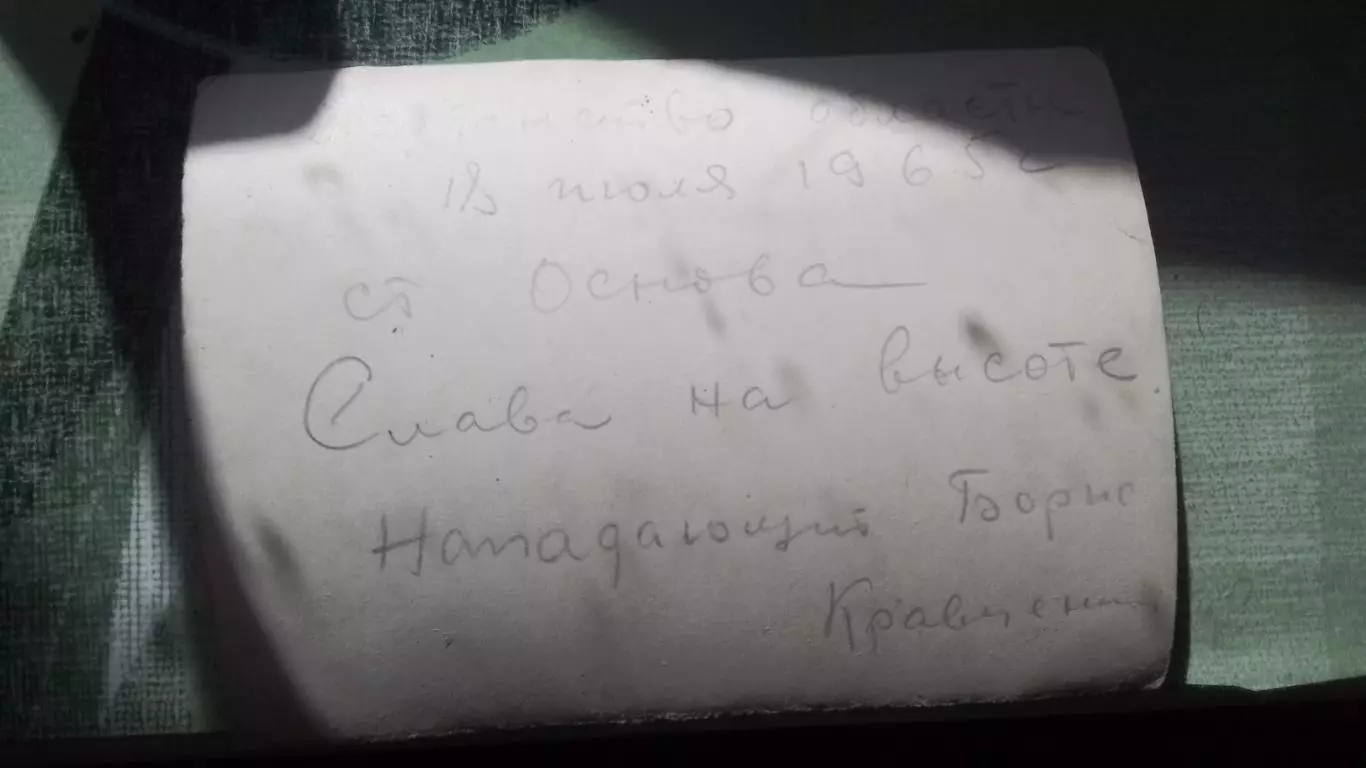 Первенство области
18 июля 1965 г
ст Основа
Слава на высоте.
Нападающий Борис
Кравченко